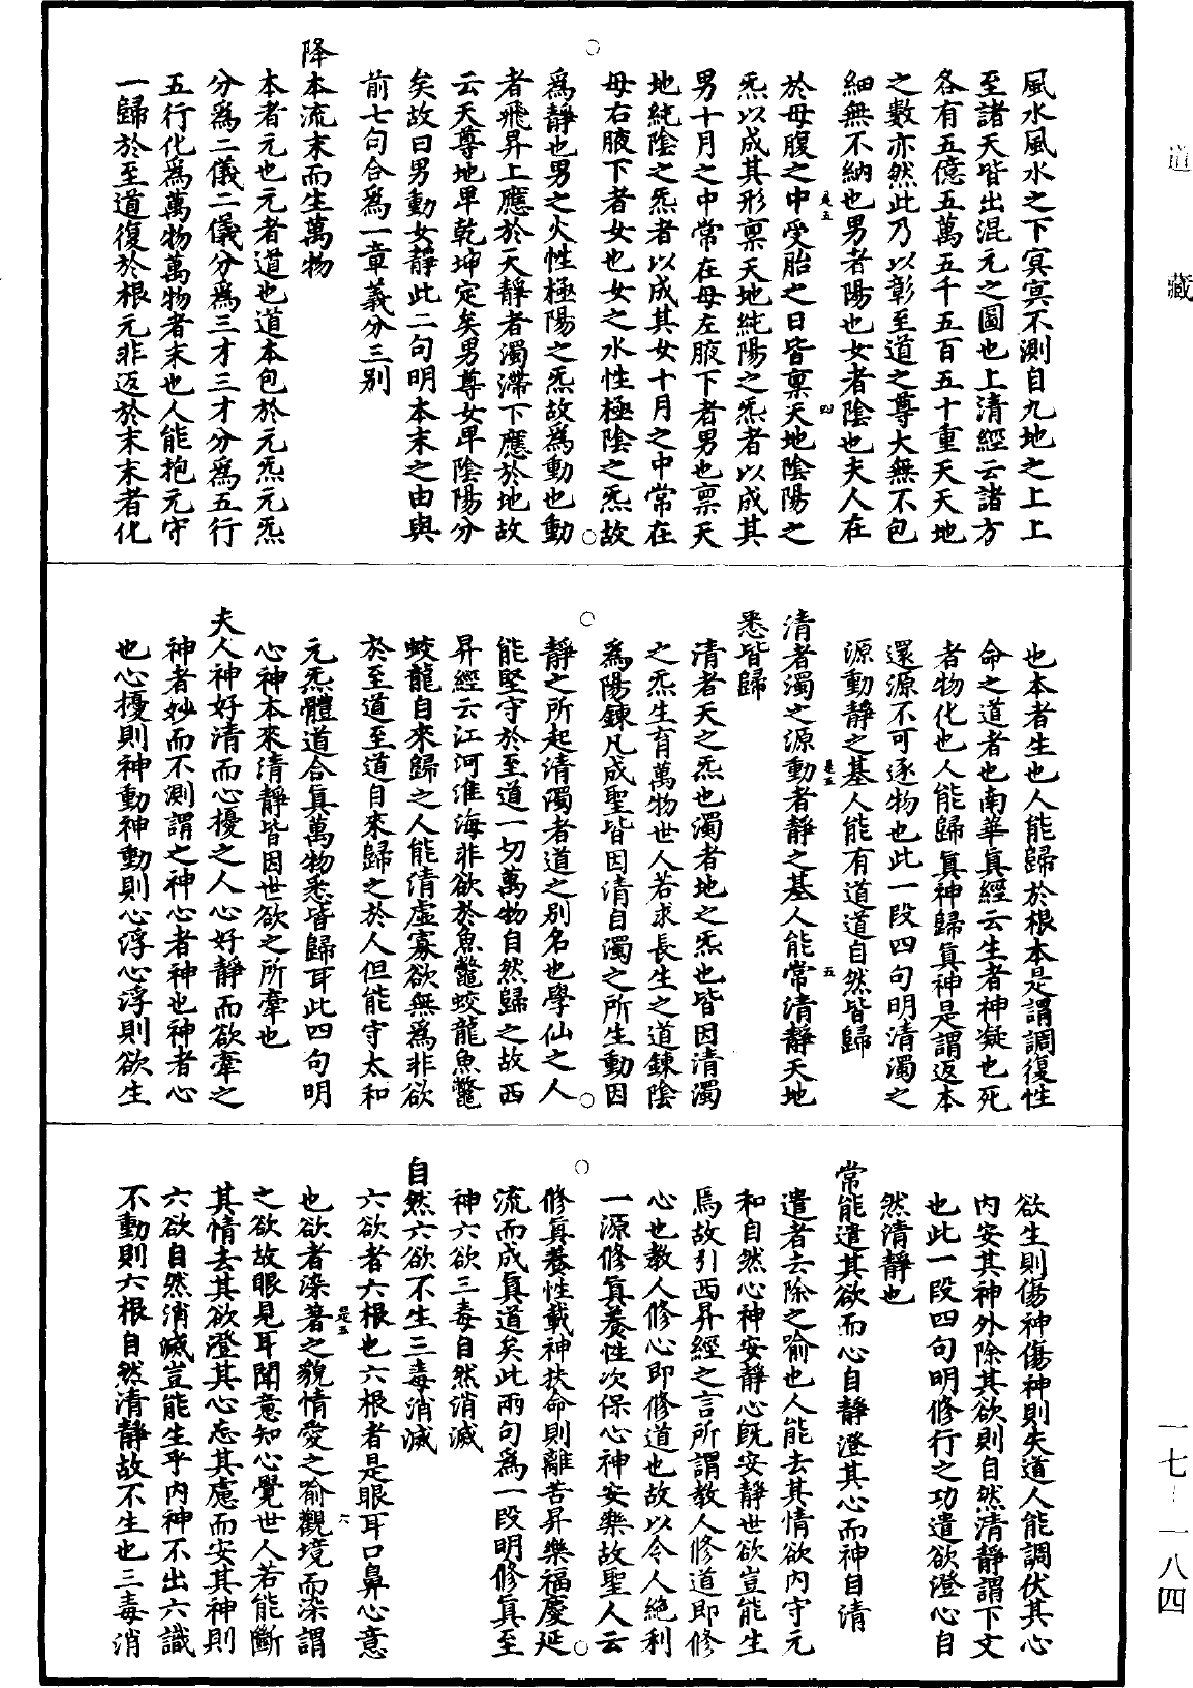 道藏
風水風水之下冥冥不測自九地之上上
至諸天皆出混元之圖也上清經云諸方
各有五億五萬五千五百五十重天天地
之數亦然此乃以彰至道之尊大無不包
細無不納也男者陽也女者陰也夫人在
於母腹之中受胎之日皆稟天地陰陽之
炁以成其形稟天地純陽之炁者以成其
男十月之中常在母左腋下者男也稟天
地純陰之炁者以成其女十月之中常在
母右腋下者女也女之水性極陰之炁故
爲靜也男之火性極陽之炁故爲動也動
者飛昇上應於天靜者濁滯下應於地故
云天尊地卑乾坤定矣男尊女卑陰陽分
矣故曰男動女靜此二句明本末之由與
前七句合爲一章義分三別
降本流末而生萬物
本者元也元者道也道本包於元炁元炁
分爲二儀二儀分爲三才三才分爲五行
五行化爲萬物萬物者末也人能抱元守
一歸於至道復於根元非返於末末者化
也本者生也人能歸於根本是謂調復性
命之道者也南華真經云生者神凝也死
者物化也人能歸真神歸真神是謂返本
還源不可逐物也此一段四句明清濁之
源動靜之基人能有道道自然皆歸
清者濁之源動者靜之基人能常清靜天地
悉皆歸
清者天之炁也濁者地之炁也皆因清濁
之炁生育萬物世人若求長生之道鍊陰
爲陽鍊凡成聖皆因清自濁之所生動因
靜之所起清濁者道之別名也學仙之人
能堅守於至道一切萬物自然歸之故西
昇經云江河淮海非欲於魚鼈蛟龍魚鼈
蛟龍自來歸之人能清虛寡欲無爲非欲
於至道至道自來歸之於人但能守太和
元炁體道合真萬物悉皆歸耳此四句明
心神本來清靜皆因世欲之所牽也
夫人神好清而心擾之人心好靜而欲牽之
神者妙而不測謂之神心者神也神者心
也心擾則神動神動則心浮心浮則欲生
欲生則傷神傷神則失道人能調伏其心
內安其神外除其欲則自然清靜謂下文
也此一段四句明修行之功遣欲澄心自
然清靜也
常能遣其欲而心自靜澄其心而神自清
遣者去除之喻也人能去其情欲內守元
和自然心神安靜心既安靜世欲豈能生
焉故引西昇經之言所謂教人修道即修
心也教人修心即修道也故以令人絕利
一源修真養性次保心神安樂故聖人云
修真養性載神扶命則離苦昇樂福慶延
流而成真道矣此兩句爲一段明修真至
神六欲三毒自然消滅
自然六欲不生三毒消滅
六欲者六根也六根者是眼耳口鼻心意
也欲者染著之貌情愛之喻觀境而染謂
之欲故眼見耳聞意知心覺世人若能斷
其情去其欲澄其心忘其慮而安其神則
六欲自然消滅豈能生乎內神不出六識
不動則六根自然清靜故不生也三毒消
一七-一八四